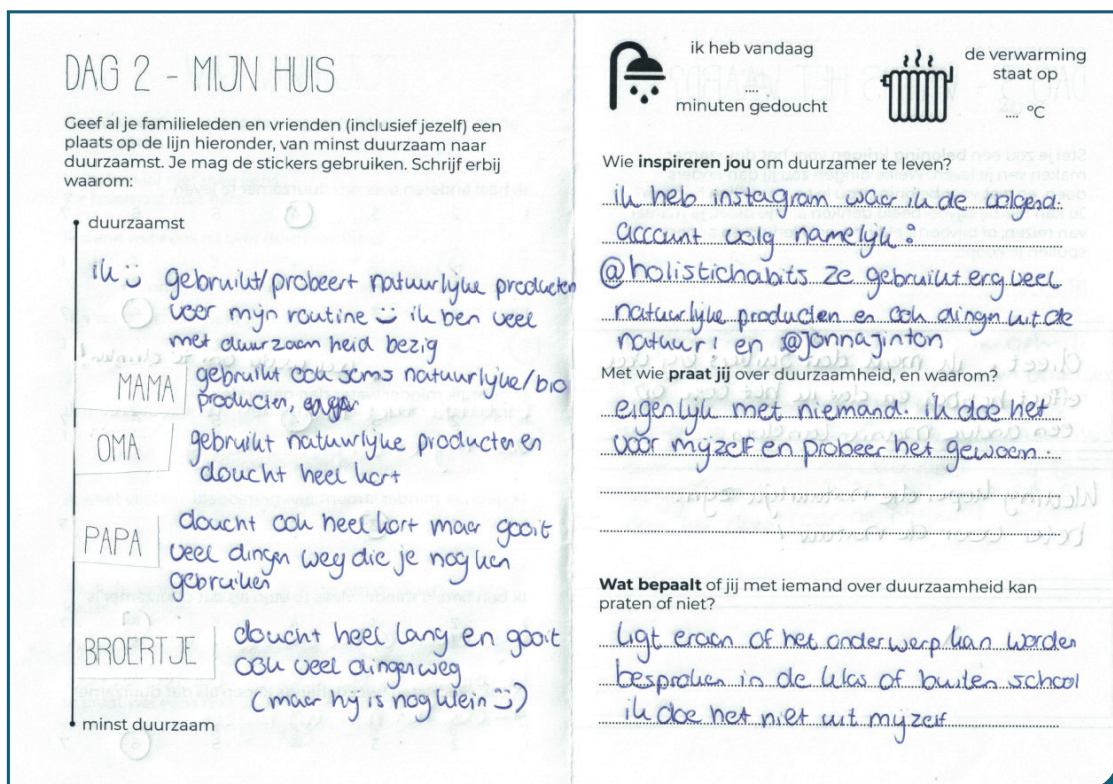 DAG 2 - MIJN HUIS
Geef al je familieleden en vrienden (inclusief jezelf) een
plaats op de lijn hieronder, van minst duurzaam naar
duurzaamst. Je mag de stickers gebruiken. Schrijf erbij
waarom:
duurzaamst
ik :) gebruikt/probeert natuurlijke producten
voor mijn routine :) ik ben veel
met duurzaam heid bezig
MAMA
gebruikt ook soms natuurlijke/bio
producten,
OMA
gebruikt natuurlijke producten en
doucht heel kort
PAPA
doucht ook heel kort maar gooit
veel dingen weg die je nog kan
gebruiken
BROERTJE
doucht heel lang en gooit
ook veel dingen weg
(maar hij is nog klein :))
minst duurzaam
ik heb vandaag
....
minuten gedoucht
de verwarming
staat op
.... °C
Wie inspireren jou om duurzamer te leven?
ik heb instagram waar ik de volgend.
account volg namelijk:
@holistichabits ze gebruikt erg veel
natuurlijke producten en ook dingen uit de
natuur! en @jonnajinton
Met wie praat jij over duurzaamheid, en waarom?
eigenlijk met niemand. ik doe het
voor mijzelf en probeer het gewoon.
Wat bepaalt of jij met iemand over duurzaamheid kan
praten of niet?
ligt eraan of het onderwerp kan worden
besproken in de klas of buiten school
ik doe het niet uit mijzelf